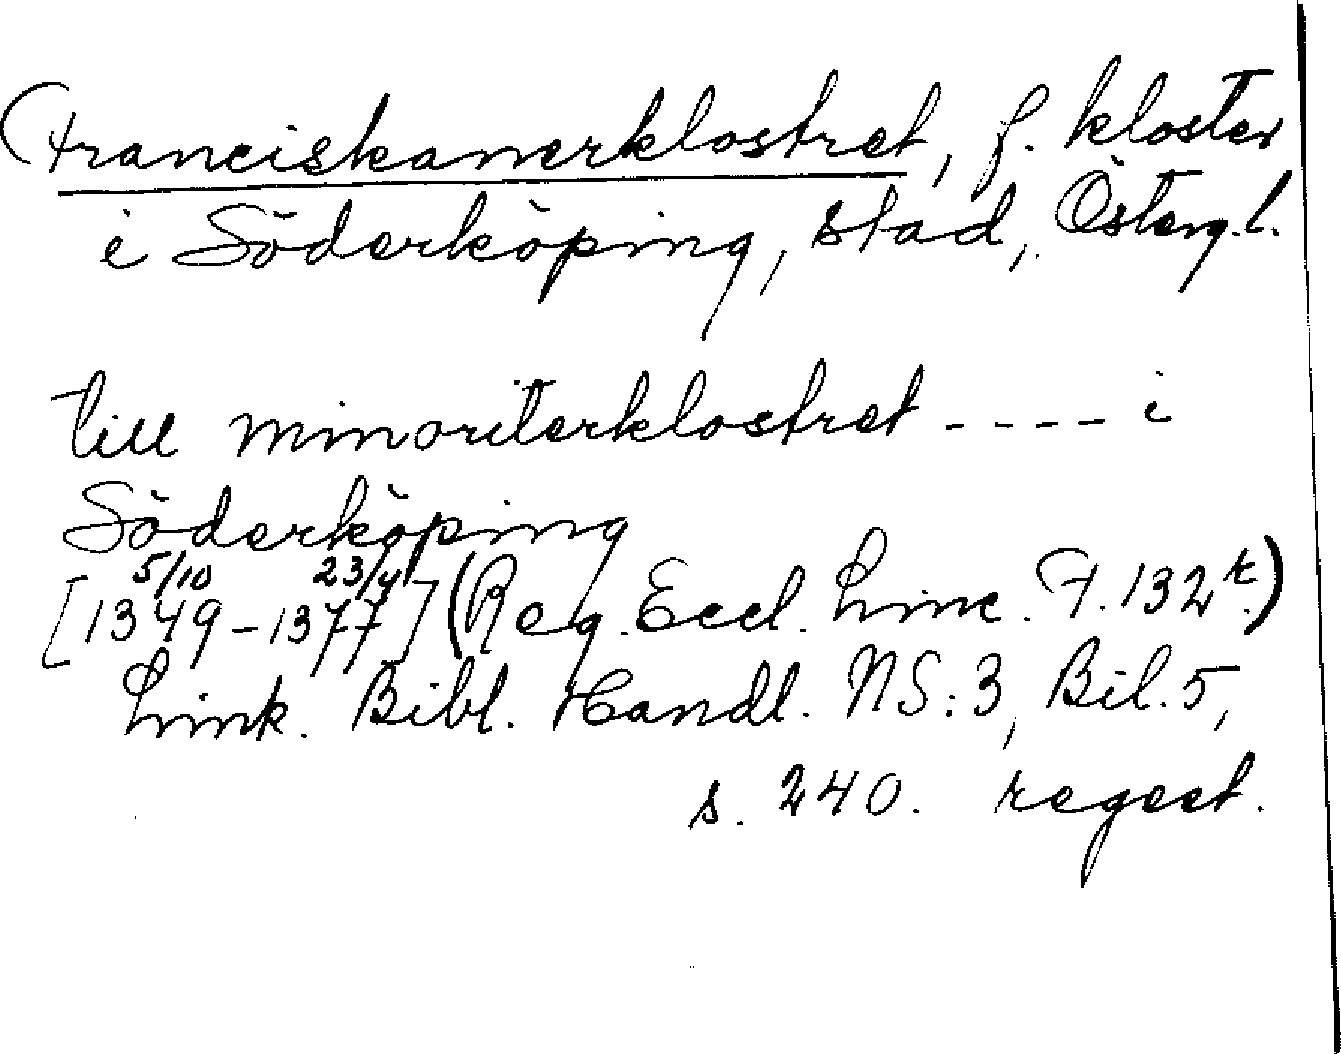 Franciskanerklostret, f. kloster
i Söderköping, stad, Östergl.
till minoriterklostret ---- i
Söderköping
[5/10 1349 - 23/4 1377] (Reg. Eccl. Linc. F. 132 r.)
Link. Bibl. Handl. NS: 3, Bil. 5,
s. 240. regest.